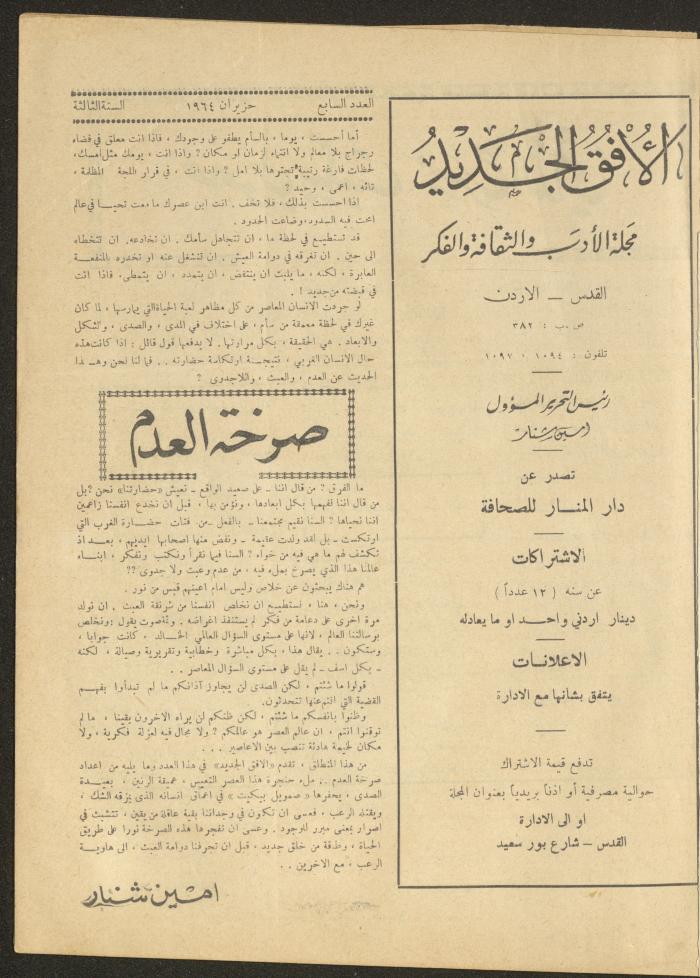 الأفق الجديد
مجلة الأدب والثقافة والفكر
القدس ــ الاردن
ص.ب : ٣٨٢
تلفون : ١٠٩٤ ، ١٠٩٧
رئيس التحرير المسؤول
امين شنار
تصدر عن
دار المنــار للصحافة
الاشتراكات
عن سنه ( ١٢ عدداً )
دينار اردني واحـد او ما يعادله
الاعلانـات
يتفق بشأنها مع الادارة
تدفع قيمة الاشتراك
حوالية مصرفية أو اذناً بريدياً بعنوان المجلة
او الى الادارة
القدس ــ شارع بور سعيد
العدد السابع حزيران ١٩٦٤ السنة الثالثة
أما أحسست ، يوما ، بالسأم يطفو على وجودك ، فاذا انت معلق في فضاء
رجراج بلا معالم ولا انتهاء لزمان او مكان ? واذا انت ، يومك مثل امسك ،
لحظات فارغة رتيبة تجترها بلا امل ? واذا انت ، في قرار اللجة المظلمة ،
تائه ، اعمى ، وحيد ?
اذا احسست بذلك ، فلا تخف . انت ابن عصرك ما دمت تحيـا في عالم
امحت فيه السدود، وضاعت الحدود .
قد تستطيع في لحظة ما ، ان تتجاهل سأمك . ان تخادعه. ان تتخطاه
الى حين . ان تغرقه في دوامة العيش . ان تنشغل عنه او تخدره بالمنفعـة
العابرة ، لكنه ، ما يلبث ان ينتفض ، ان يتمدد ، ان يتمطى، فاذا انت
في قبضته من جديد ! .
لو جردت الانسان المعاصر من كل مظاهر لعبة الحياة التي يمارسها ، لما كان
غيرك في لحظة معمقة من سأم ، على اختلاف في المدى ، والصدى ، والشكل
والابعاد . هي الحقيقة ، بكل مرارتها . لا يدفعها قول قائل : اذا كانت هذه
حال الانسان الغربي ، نتيجـة ارتكاسة حضارته .. فما لنا نحن وهـذا
الحديث عن العدم ، والعبث ، واللاجدوى ?
صرخة العدم
ما الفرق ? من قال اننا ـ على صعيد الواقع ـ نعيش «حضارتنا» نحن ? بل
من قال اننا نفهمها بكل ابعادها ، ونؤمن بها ، قبل ان نخدع انفسنا زاعمين
اننا نحياها ? السنا نقيم مجتمعنا ـ بالفعل ـ من فتات حضـارة الغرب التي
ارتكست ـ بل لقد ولدت عقيمة ـ ونفض منها اصحابها ايديهم ، بعـد اذ
تكشف لهم ما هي فيه من خواء ? السنا فيما نقرأ ونكتب ونفكر ، ابنـاء
عالمنا هذا الذي يصرخ بملء فيه ، من عدم وعبث ولا جدوى ??
هم هناك يبحثون عن خلاص وليس امام اعينهم قبس من نور .
ونحن ، هنا ، نستطيـع ان نخلص انفسنا من شرنقة العبث . ان نولد
مرة اخرى على دعامة من فكر لم يستنفد اغراضه . وثم صوت يقول : ونخلص
برسالتنا العالم ، لانها على مستوى السؤال العالمي الخـالد ، كانت جوابا ،
وستكون .. يقال هذا ، بكل مباشرة وخطابية وتقريرية وصيالة ، لكنه
ـ بكل اسف ـ لم يقل على مستوى السؤال المعاصر ..
قولوا ما شئتم ، لكن الصدى لن يجاوز آذانكم ما لم تبدأوا بفهـم
القضية التي انتم عنها تتحدثون.
وظنوا بانفسكم ما شئتم ، لكن ظنكم لن يراه الآخرون يقينا ، ما لم
توقنوا انتم ، ان عالم العصر هو عالمكم ? ولا مجال فيه لعزلة فكرية ، ولا
مكان لخيمة هادئة تنصب بين الاعاصير ...
من هذا المنطلق ، تقدم «الافق الجديد» في هذا العدد وما يليه من اعداد
صرخة العدم ... ملء حنجرة هذا العصر التعيس ، عميقة الرنين ، بعيـدة
الصدى ، يحفرها « صمويل بيكيت » في اعماق انسانه الذي يمزقه الشك ،
ويقتله الرعب ، فعسى ان تكون في وجداننا بقية عالقة من يقين ، تتشبث في
اصرار بمعنى مبرر للوجود . وعسى ان نفجرها هذه الصرخة نورا على طريق
الحياة ، وطاقة من خلق جديد ، قبل ان تجرفنا دوامة العبث ، الى هاويـة
الرعب ، مع الآخرين ..
امين شنار